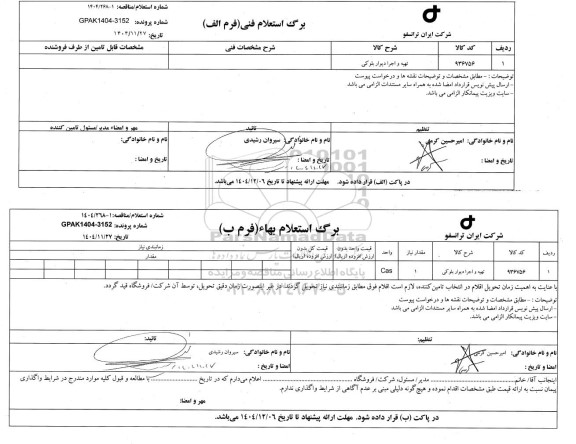 شماره استعلام/مناقصه: ۱۴۰۴/۲۶۸۰۱
برگ استعلام فنی(فرم الف)
شماره پرونده: GPAK1404-3152
تاریخ: ۱۴۰۴/۱۱/۲۷
شرکت ایران ترانسفو
ردیف کد کالا شرح کالا شرح مشخصات فنی مشخصات قابل تامین از طرف فروشنده
۱ ۹۳۶۷۵۶ تهیه و اجرا دیوار بلوکی
توضیحات : - مطابق مشخصات و توضیحات نقشه ها و درخواست پیوست
- ارسال پیش نویس قرارداد امضا شده به همراه سایر مستندات الزامی می باشد
- سایت ویزیت پیمانکار الزامی می باشد.
تنظیم تائید مهر و امضاء مدیر/مسئول تامین کننده
نام و نام خانوادگی: امیرحسین کرمی نام و نام خانوادگی: سیروان رشیدی نام و نام خانوادگی:
تاریخ و امضا : تاریخ و امضا : تاریخ و امضا :
در پاکت (الف) قرار داده شود. مهلت ارائه پیشنهاد تا تاریخ ۱۴۰۴/۱۲/۰۶ می‌باشد.
شماره استعلام/مناقصه: ۱۴۰۴/۲۶۸۰۱
برگ استعلام بهاء(فرم ب)
شماره پرونده: GPAK1404-3152
تاریخ: ۱۴۰۴/۱۱/۲۷
شرکت ایران ترانسفو
ردیف کد کالا شرح کالا مقدار نیاز واحد قیمت واحد بدون ارزش افزوده (ریال) قیمت کل بدون ارزش افزوده (ریال) زمانبندی نیاز
مقدار
۱ ۹۳۶۷۵۶ تهیه و اجرا دیوار بلوکی ۱ Cas
با عنایت به اهمیت زمان تحویل اقلام در انتخاب تامین کننده، لازم است اقلام فوق مطابق زمانبندی نیاز تحویل گردند. در غیر اینصورت زمان دقیق تحویل، توسط آن شرکت/ فروشگاه قید گردد.
توضیحات : - مطابق مشخصات و توضیحات نقشه ها و درخواست پیوست
- ارسال پیش نویس قرارداد امضا شده به همراه سایر مستندات الزامی می باشد
- سایت ویزیت پیمانکار الزامی می باشد.
تنظیم: تائید:
نام و نام خانوادگی: امیر حسین کرمی نام و نام خانوادگی: سیروان رشیدی
امضاء و تاریخ : امضاء و تاریخ :
اینجانب آقا/ خانم مدیر/ مسئول، شرکت/ فروشگاه اعلام می‌دارم که در تاریخ با مطالعه و قبول کلیه موارد مندرج در شرایط واگذاری
پیمان نسبت به ارائه قیمت طبق مشخصات اقدام نموده و هیچ گونه دلیلی مبنی بر عدم آگاهی از شرایط واگذاری ندارم.
مهر و امضا:
در پاکت (ب) قرار داده شود. مهلت ارائه پیشنهاد تا تاریخ ۱۴۰۴/۱۲/۰۶ می‌باشد.